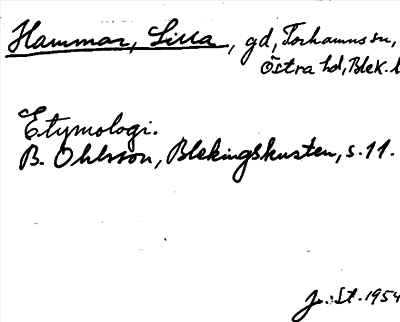 Hammar, Lilla, gd, Torhamns sn,
Östra hd, Blek. l
Etymologi.
B. Ohlsson, Blekingskusten, s. 11.
Jn. St. 1954